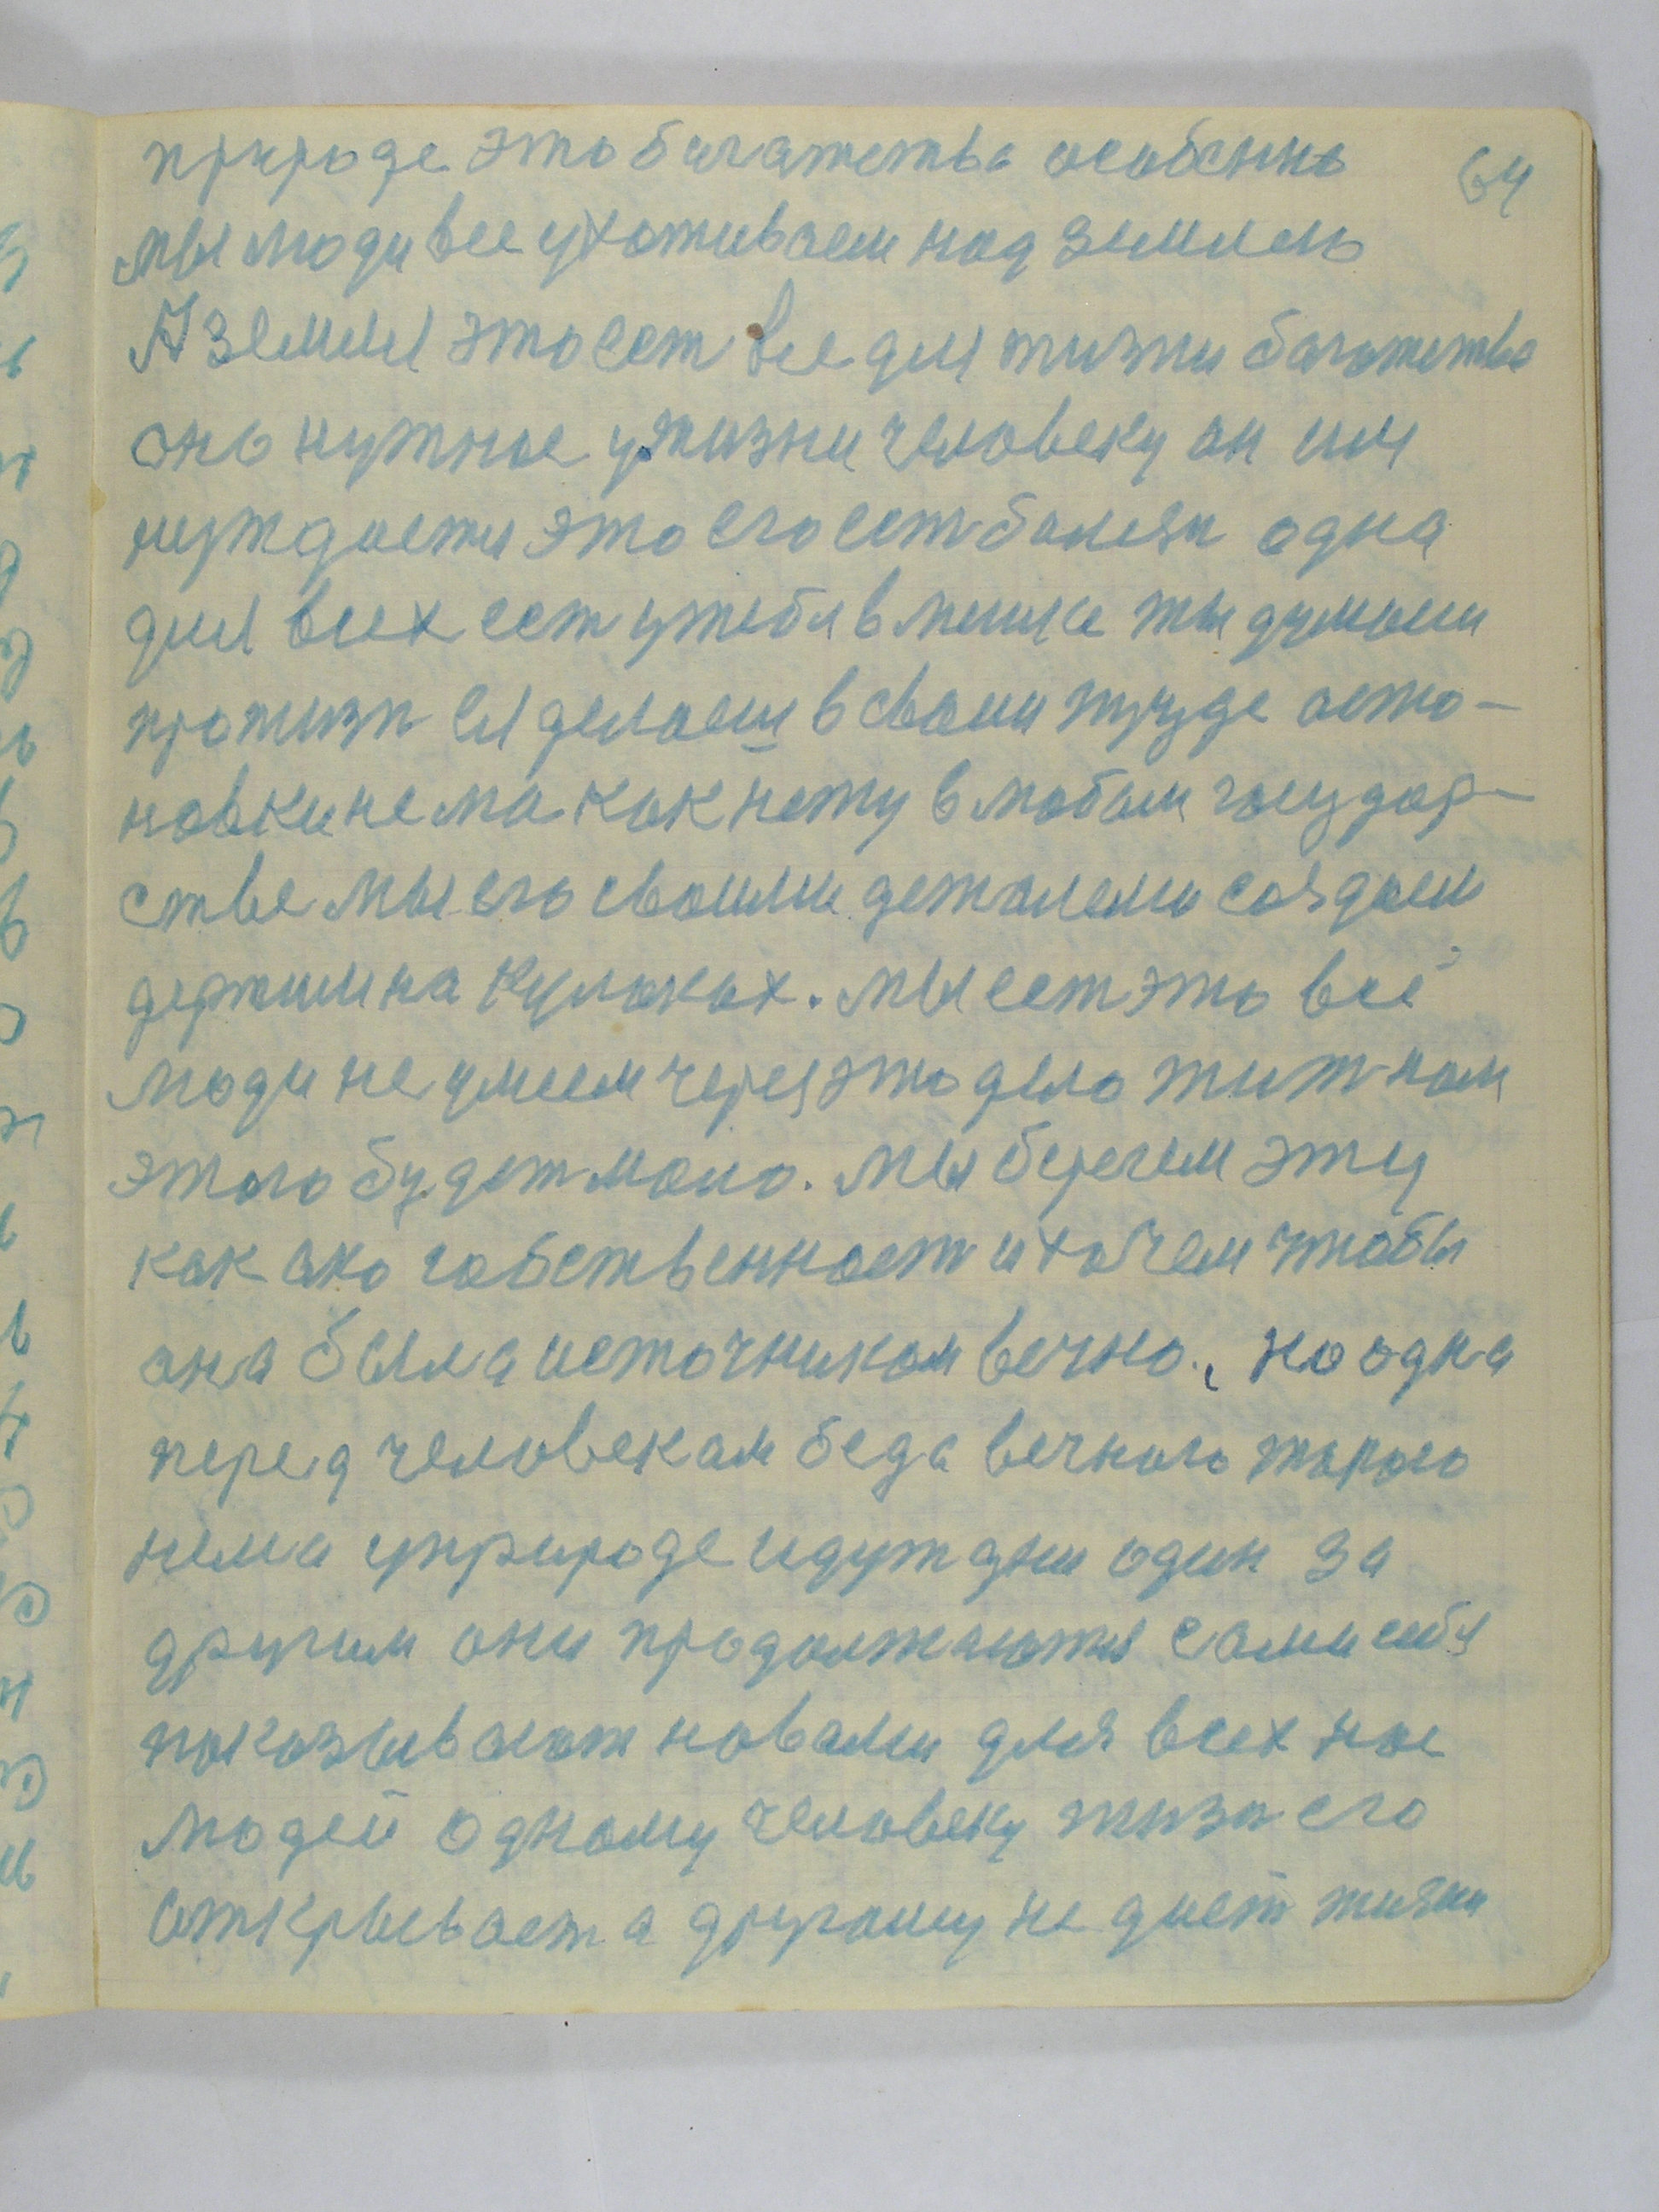 64
природе это багатства особенно
мы люди все ухаживаем над землею
А земля это ест все для жизни багатства
оно нужное у жизни человеку он им
нуждается это его ест болезн одна
для всех ест у тебя в мешке ты думаеш
про жизн ея делаеш в своем труде оста-
новки нема как нету в любом государ-
стве мы его своими деталеми создаем
держим на кулаках. мы ест это все
люди не умеем через это дело жит нам
этого будет мало. мы бережем эту
как око собственност и хочем чтобы
она была источником вечно., но одна
перед человеком беда вечного такого
нема у природе идут дни один за
другим они продолжаются сами себя
показывают новами для всех нас
людей одному человеку жизн его
открывает а другому не дает жизни